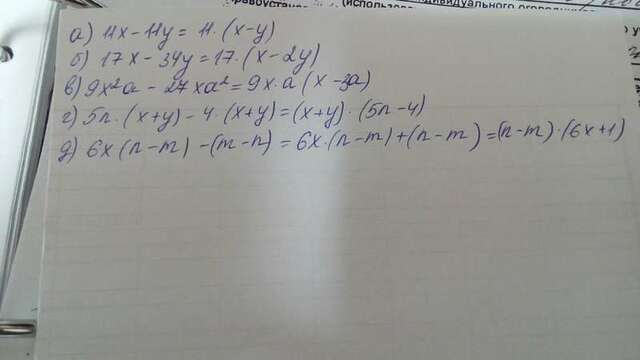 (использов
ндивидуального огородни
а) 11x - 11y = 11 · (x-y)
б) 17x - 34y = 17 · (x - 2y)
в) 9x²a - 27xa² = 9x·a (x - 3a)
г) 5n · (x+y) - 4 · (x+y) = (x+y) · (5n-4)
д) 6x (n-m) - (m-n) = 6x · (n-m) + (n-m) = (n-m) · (6x+1)